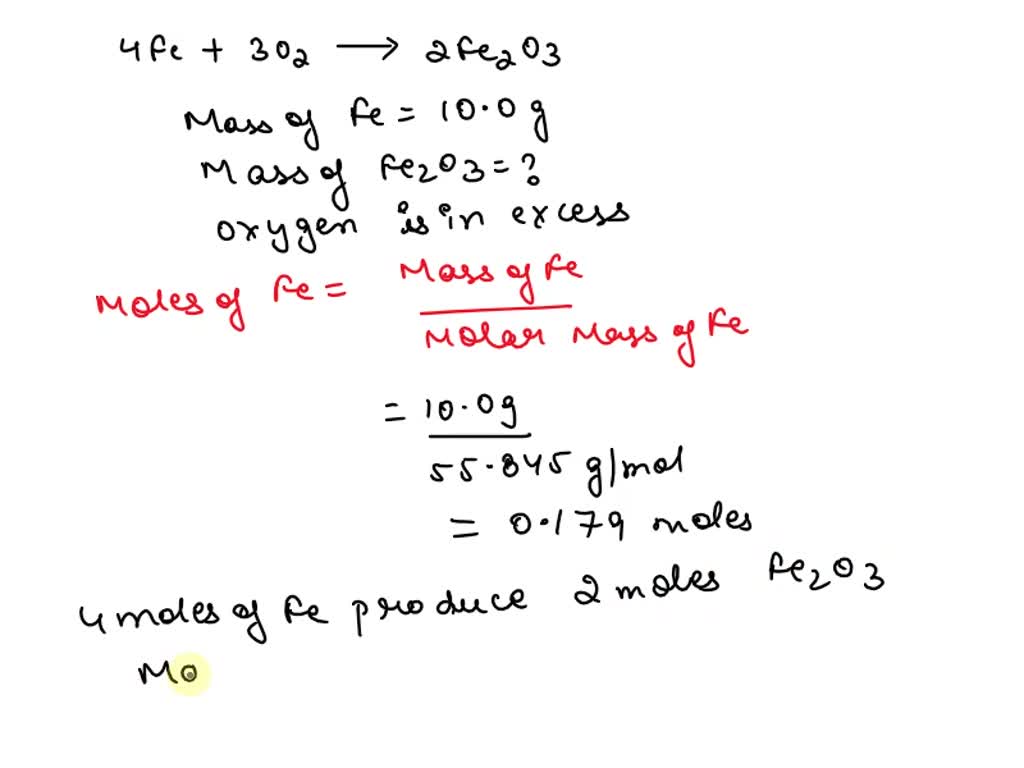 4Fe + 3O₂ → 2Fe₂O₃
Mass of Fe = 10.0 g
Mass of Fe₂O₃ = ?
oxygen is in excess
Moles of Fe = Mass of Fe
Molar Mass of Fe
= 10.0g
55.845 g/mol
= 0.179 moles
4 moles of Fe produce 2 moles Fe₂O₃
Mo